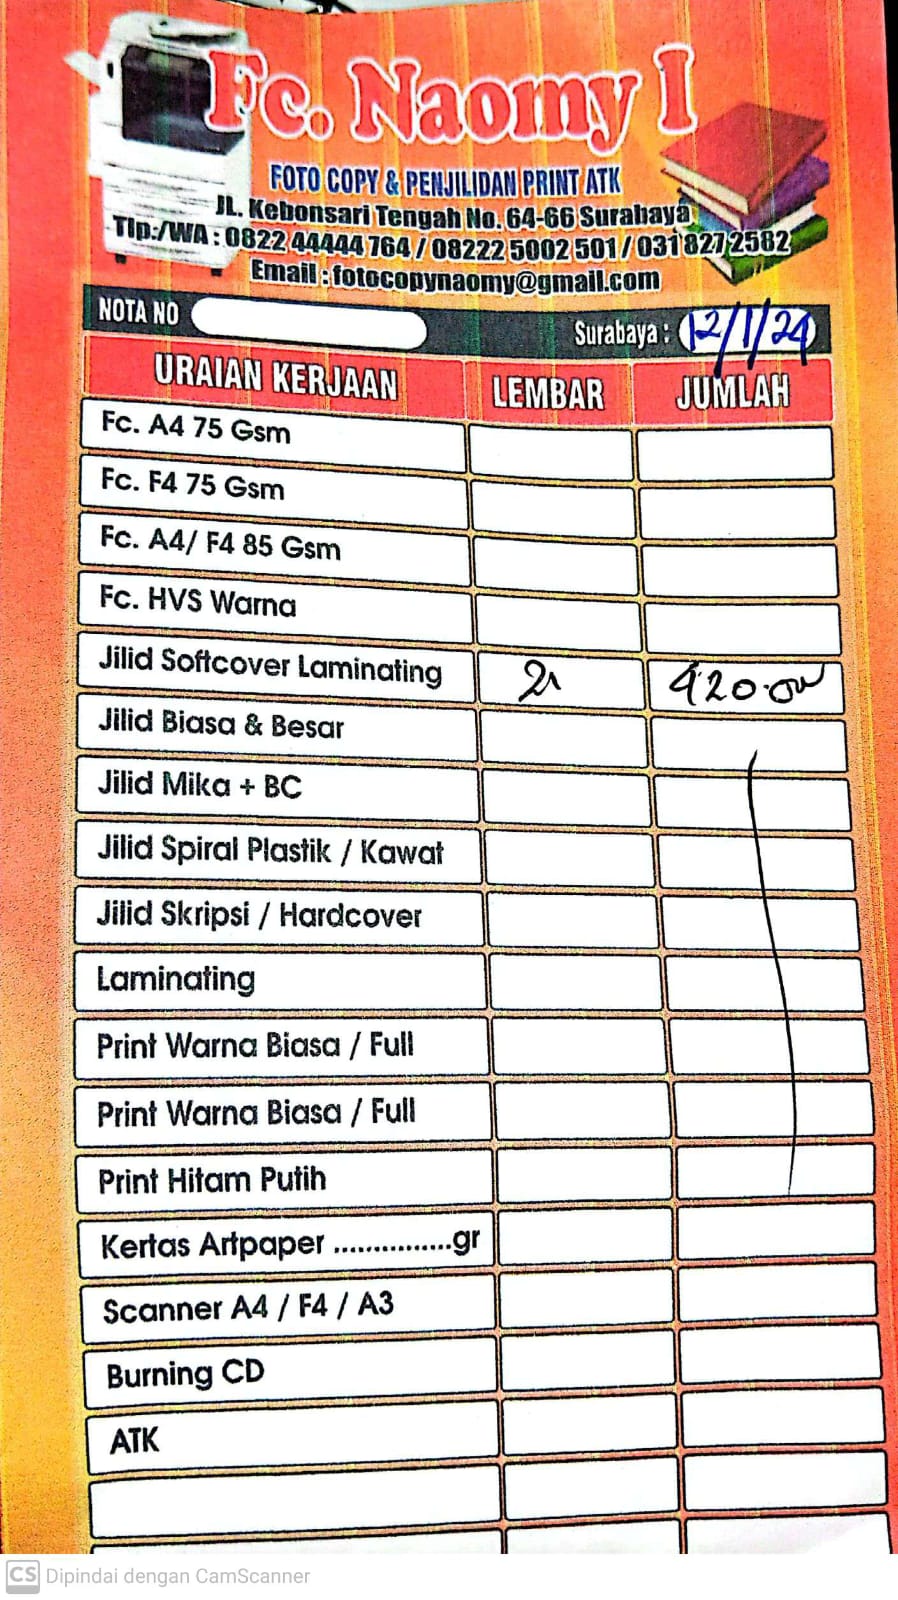 Fc. Naomy 1
FOTO COPY & PENJILIDAN PRINT ATK
JL. Kebonsari Tengah No. 64-66 Surabaya
Tlp./WA : 0822 44444 764 / 08222 5002 501 / 031 8272582
Email : fotocopynaomy@gmail.com
NOTA NO Surabaya : 12/1/24
URAIAN KERJAAN LEMBAR JUMLAH
Fc. A4 75 Gsm
Fc. F4 75 Gsm
Fc. A4/ F4 85 Gsm
Fc. HVS Warna
Jilid Softcover Laminating 21 420.000
Jilid Biasa & Besar
Jilid Mika + BC
Jilid Spiral Plastik / Kawat
Jilid Skripsi / Hardcover
Laminating
Print Warna Biasa / Full
Print Warna Biasa / Full
Print Hitam Putih
Kertas Artpaper ...............gr
Scanner A4 / F4 / A3
Burning CD
ATK
CS Dipindai dengan CamScanner